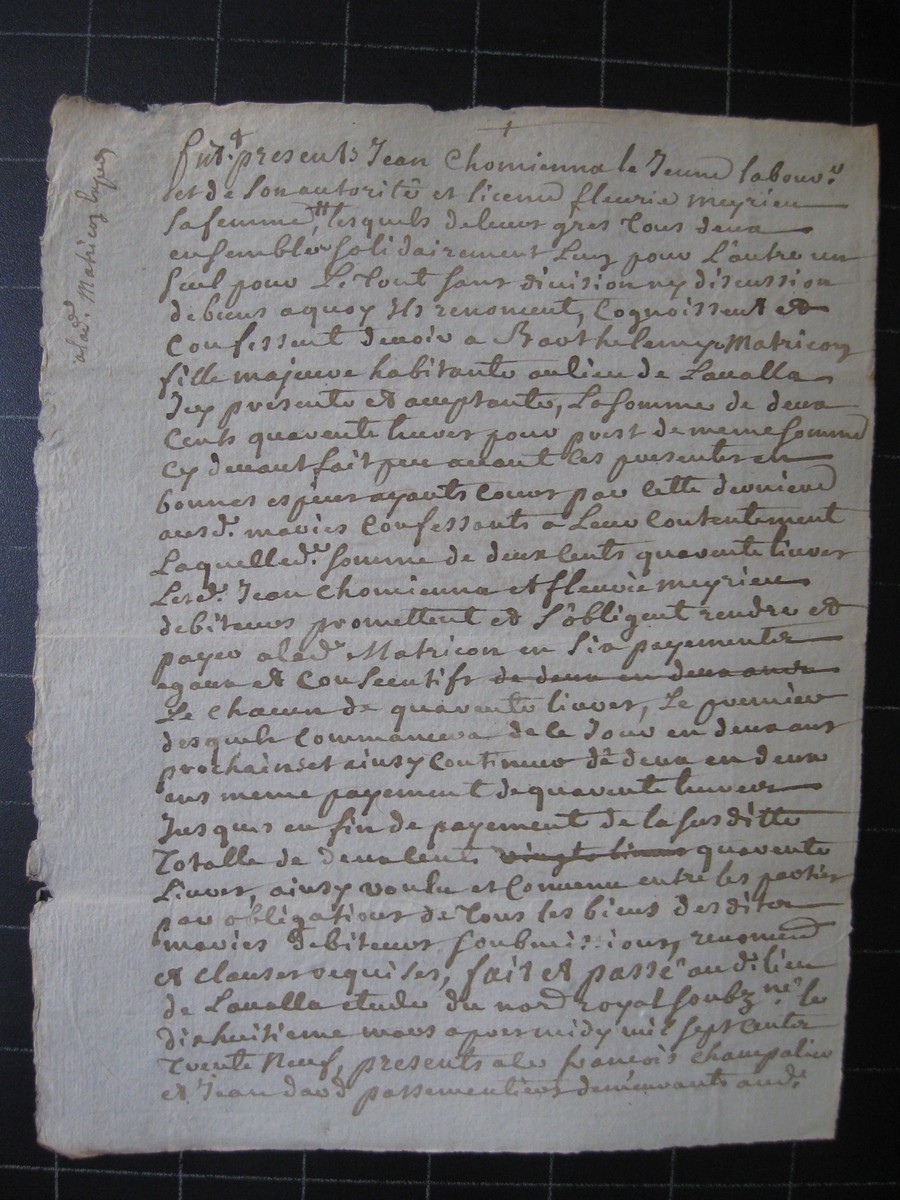 furt. presents Jean Chomienna le Jeune labour.r
et de son autorité et licence fleurie meyrieu
sa femme, lesquels de leurs grés tous deux
ensembles solidairement l'un pour l'autre un
seul pour le tout sans division ny discussion
de biens a quoy ils renoncent, Cognoissent et
Confessent devoir a Barthelemye Matricon
fille majeure habitante au lieu de Lavalla
Icy presente et acceptante, la somme de deux
Cents quarante livres pour prest de meme somme
cy devant fait peu avant ces presentes en
bonnes espéces ayants cours par cette derniere
ausd. mariés Confessants a leur Contentement
Laquelled.e somme de deux Cents quarante livres
Lesd. Jean Chomienna et fleurie meyrieu
debiteurs promettent et s'obligent rendre et
payer a lad. Matricon en six payements
egaux et Consecutifs de deux en deux ans
Le chacun de quarante livres, Le premier
desquels commancera de ce Jour en deux ans
prochains et ainsy continuer de deux en deux
ans meme payement de quarante livres
Jusques en fin de payement de la susditte
Totalle de deux Cents vingts livres quarante
Livres, ainsy voulu et Convenu entre les parties
par obligations de tous les biens desdites
mariés debiteurs soubmissions, renoncã
et clauses requises, fait et passé aud. lieu
de Lavalla etude du nore. royal soubz.né le
dixhuitieme mars apres midy mil sept cents
Trente Neuf, presents a ce françois Champalier
et Jean davd passementiers demeurants aud.
alad. Matricon